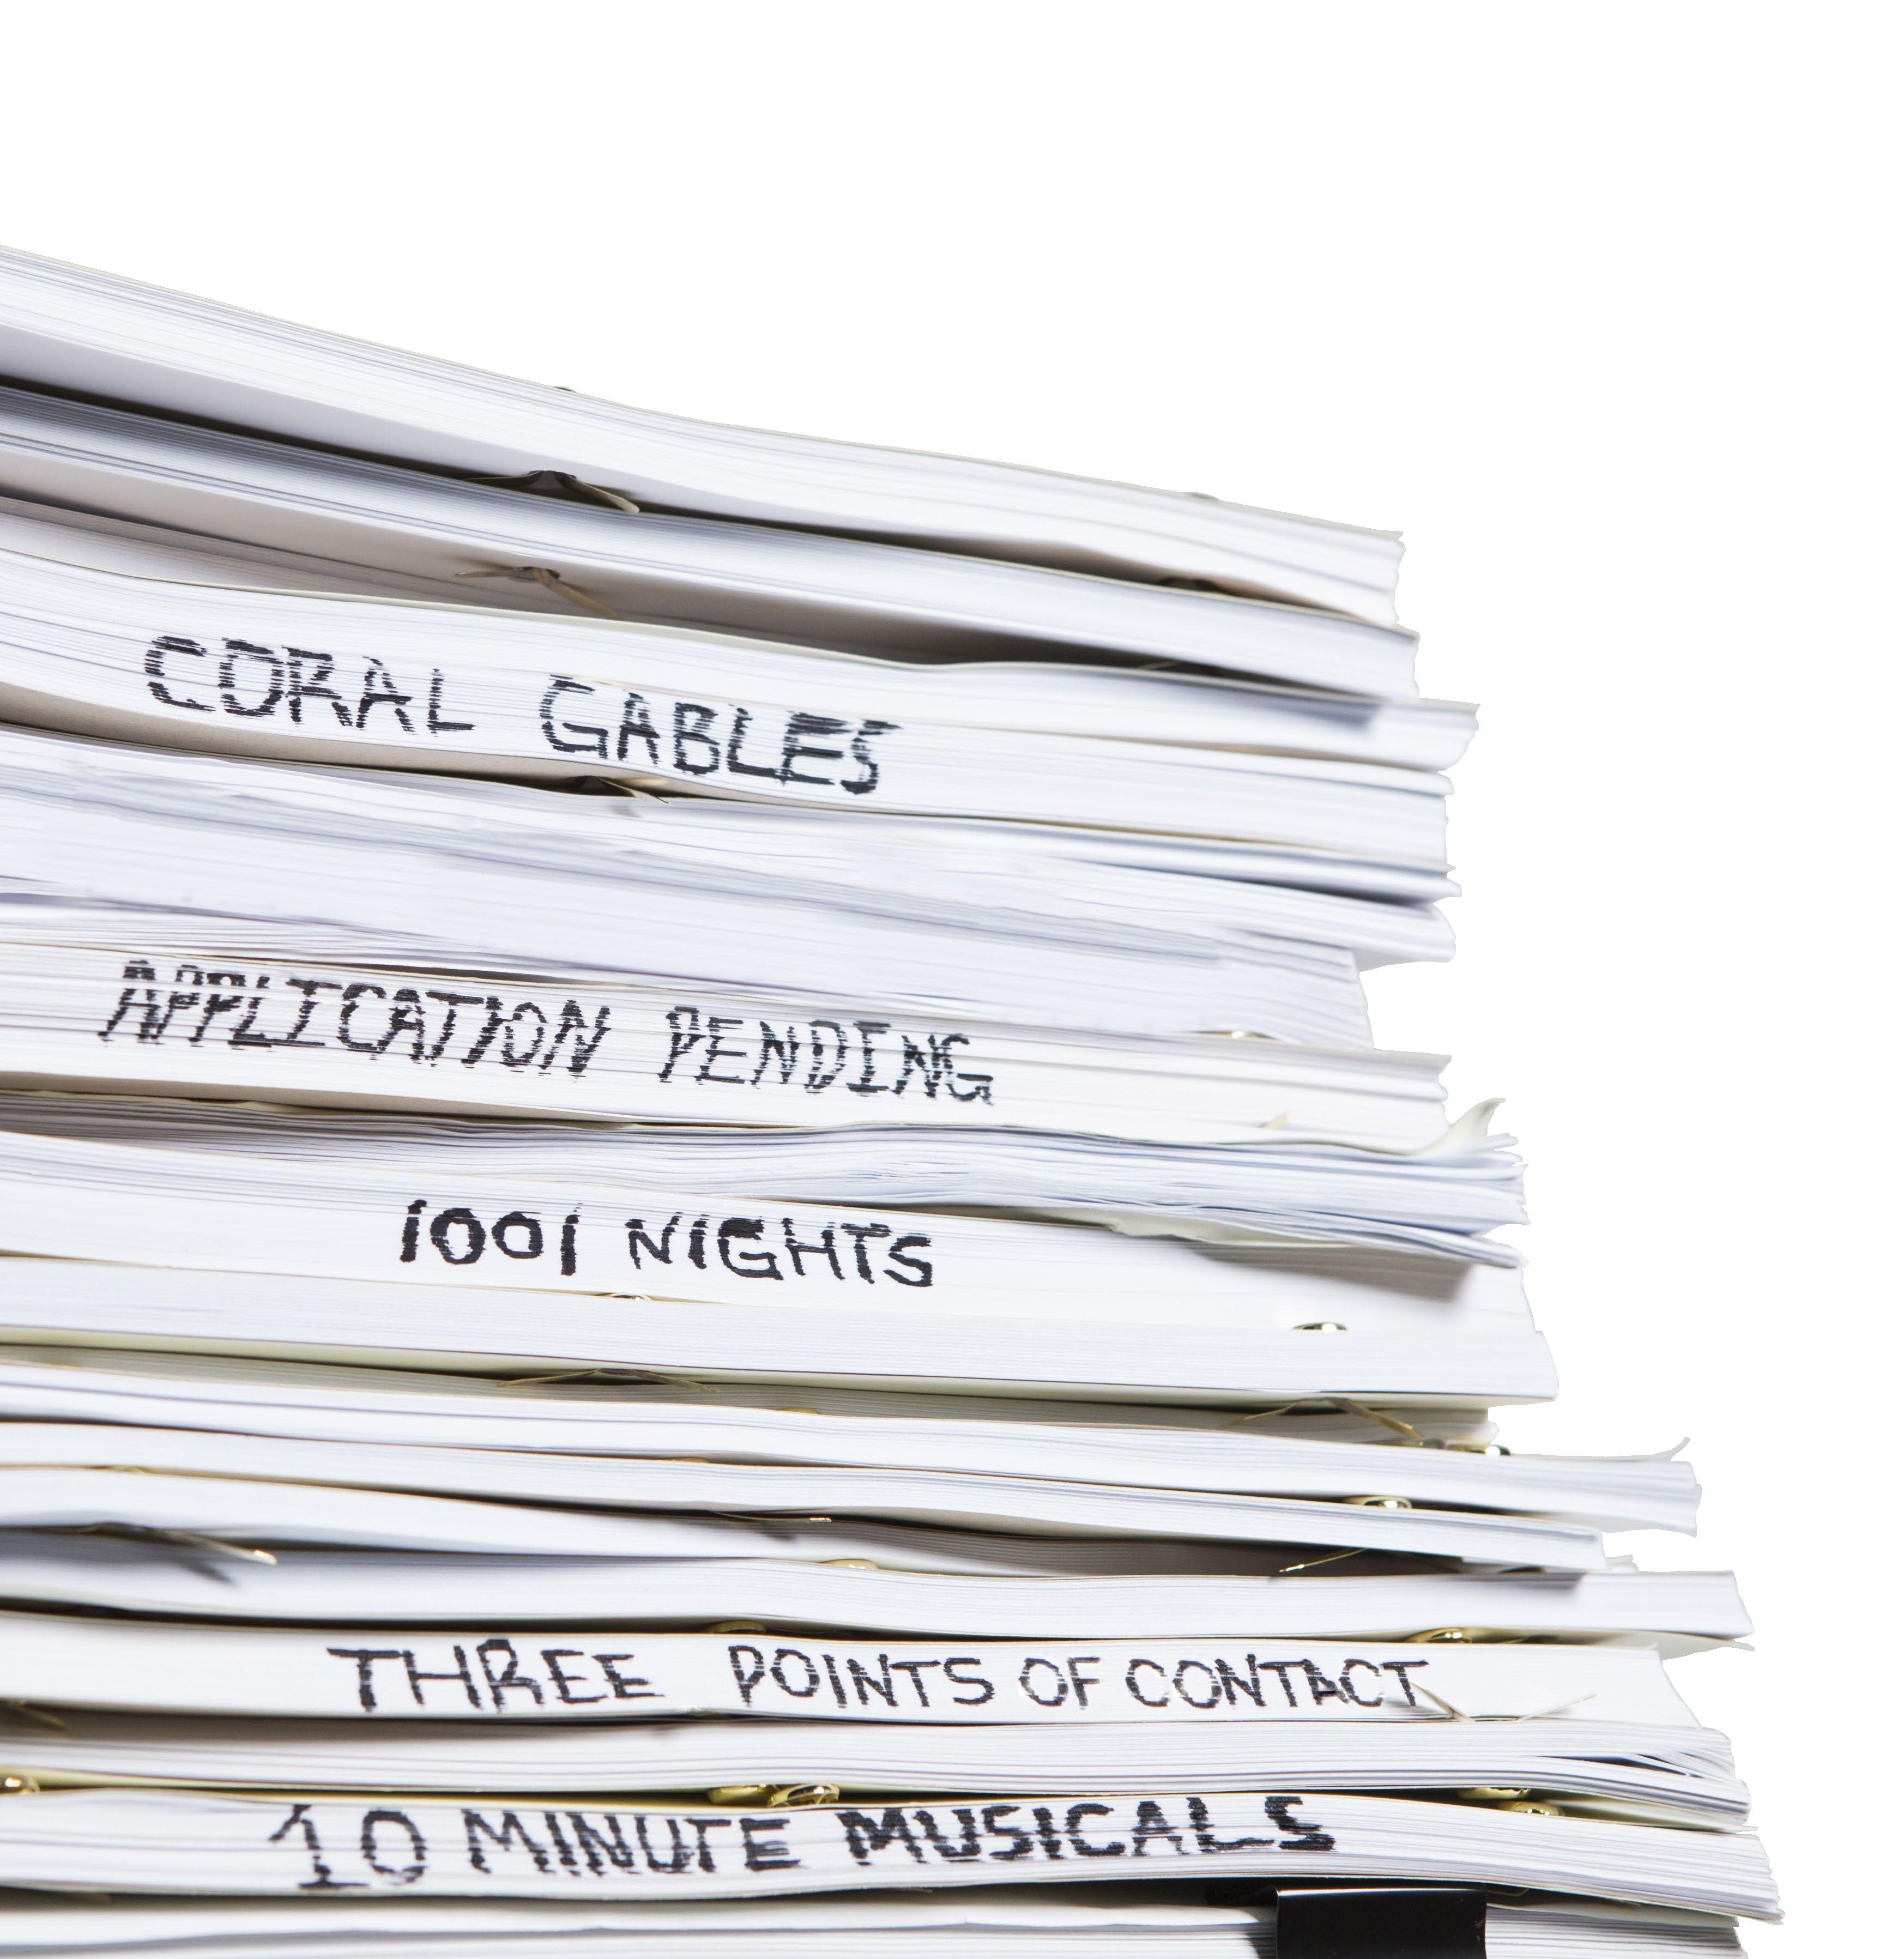 CORAL GABLES
APPLICATION PENDING
1001 NIGHTS
THREE POINTS OF CONTACT
10 MINUTE MUSICALS